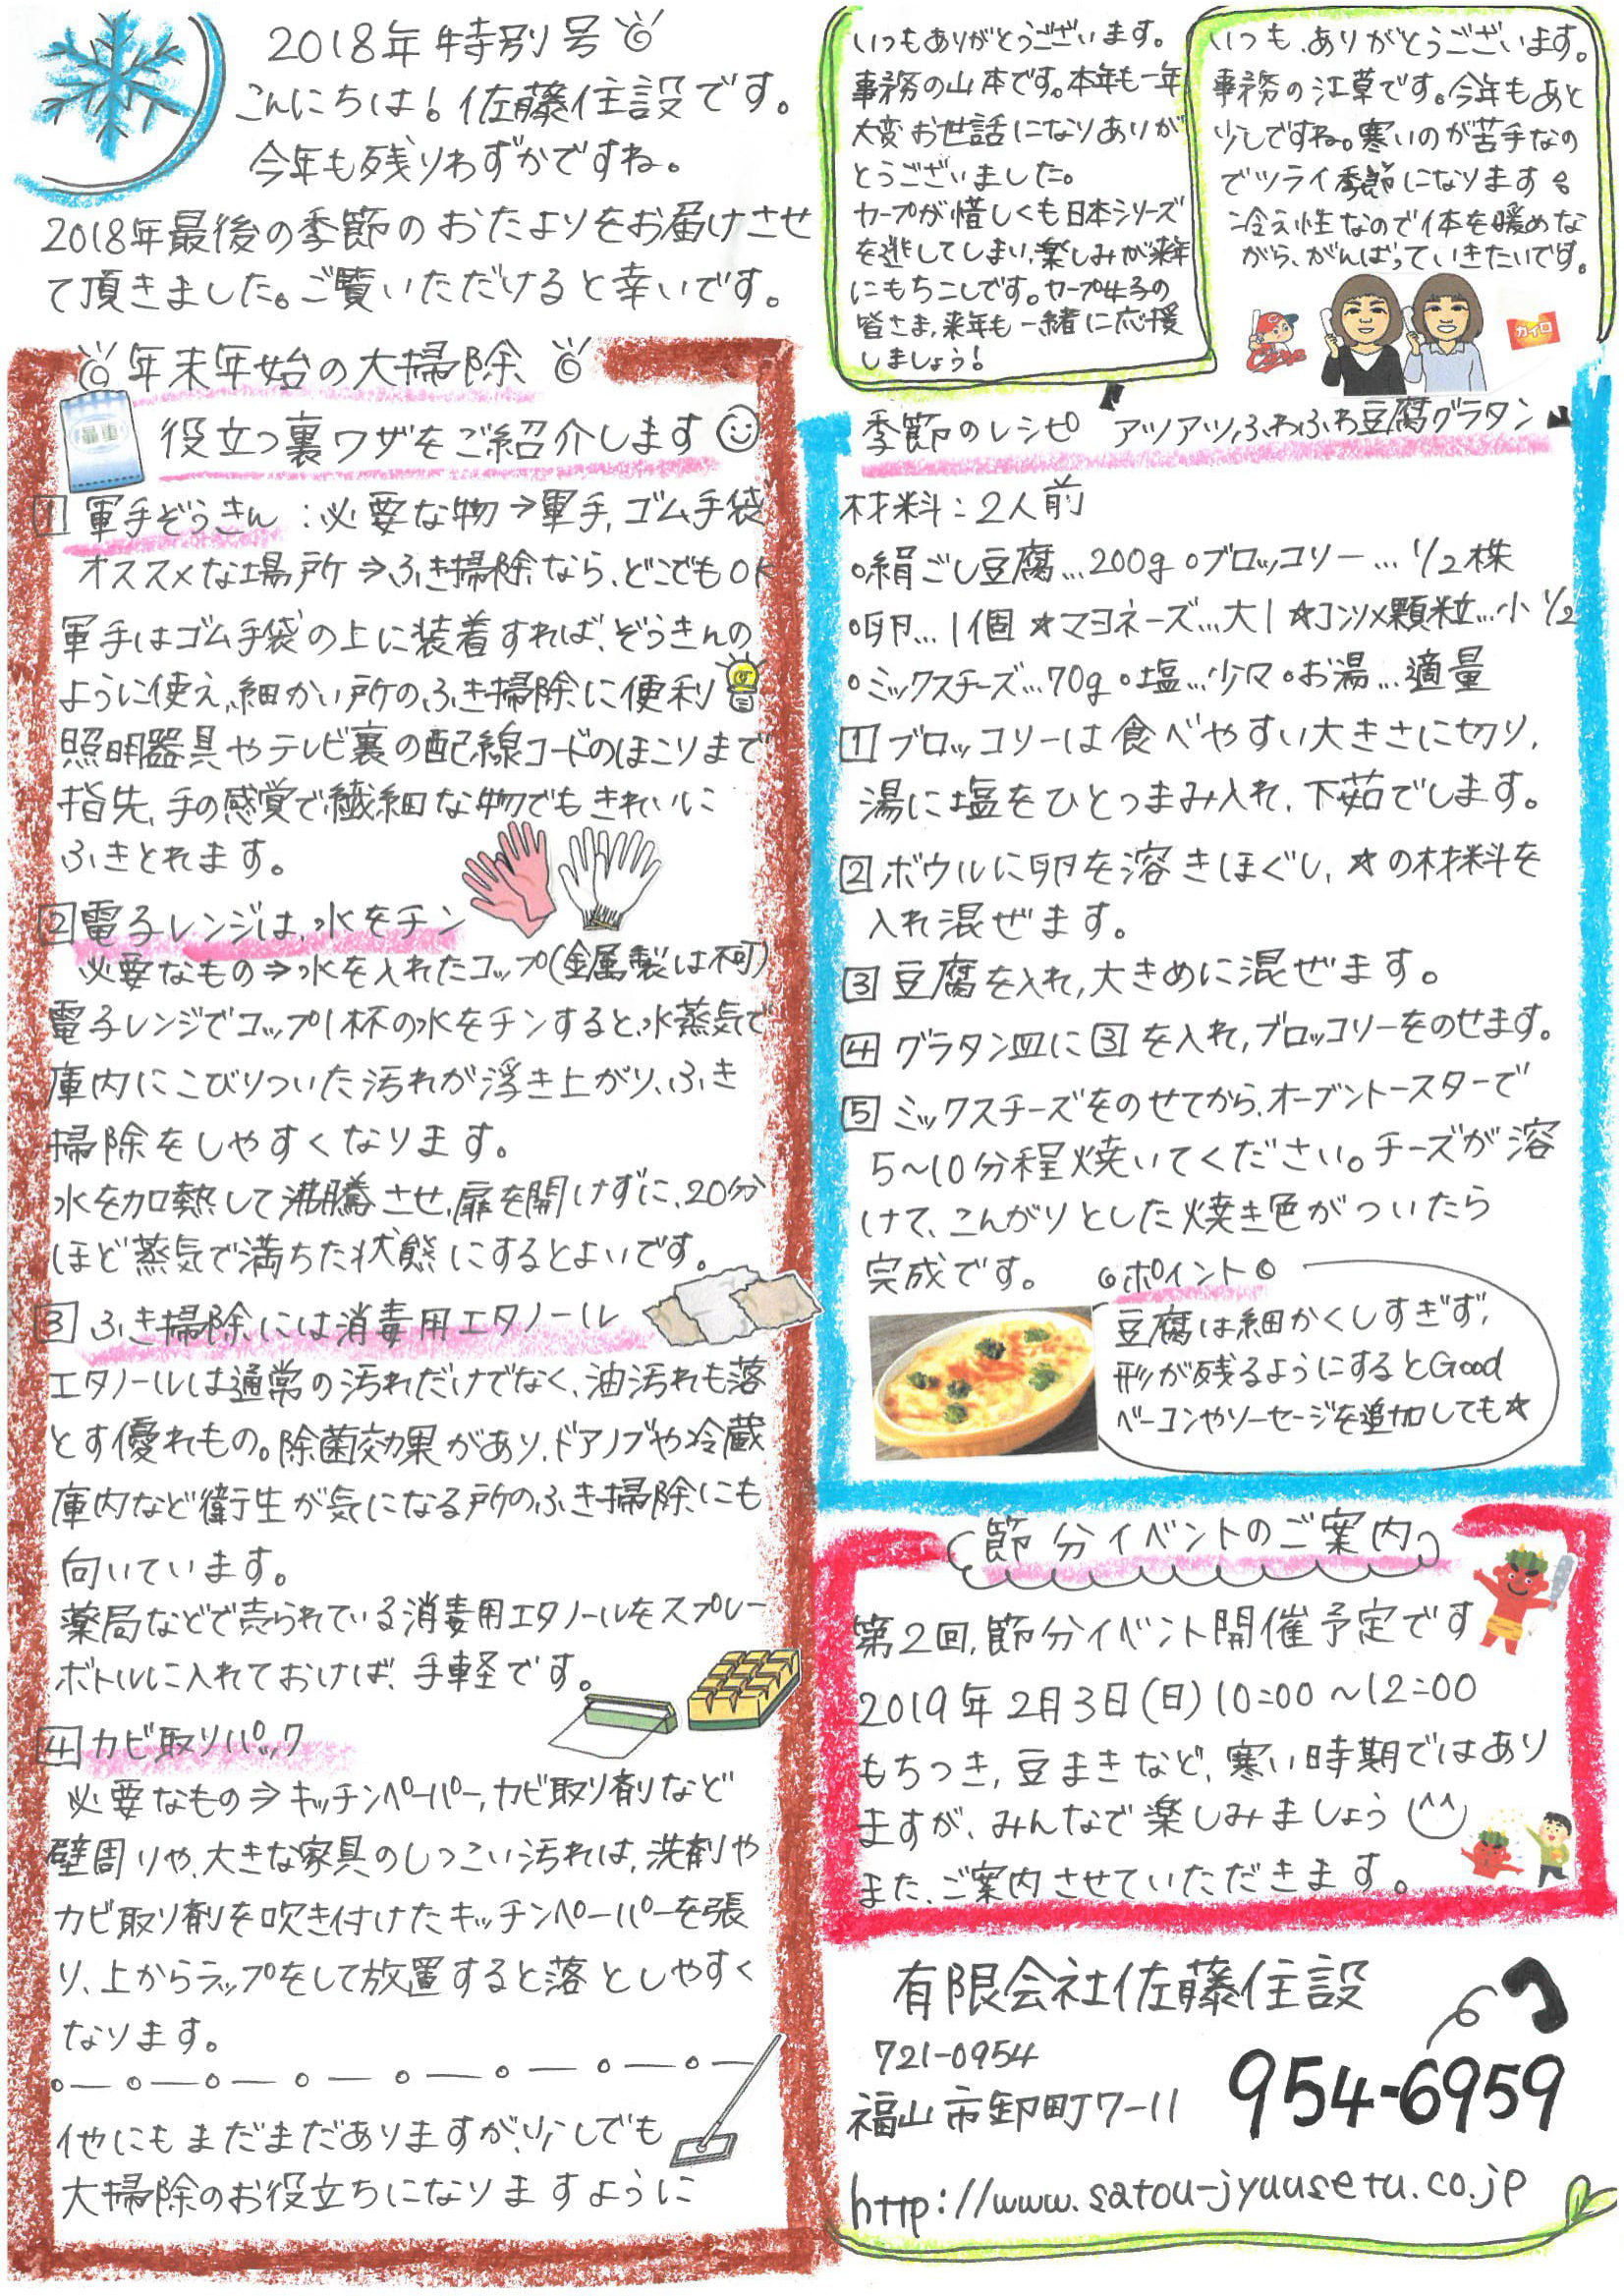 2018年特別号
こんにちは！佐藤住設です。
今年も残りわずかですね。
2018年最後の季節のおたよりをお届けさせ
て頂きました。ご覧いただけると幸いです。
いつもありがとうございます。
事務の山本です。本年も一年
大変お世話になりありが
とうございました。
カープが惜しくも日本シリーズ
を逃してしまい、楽しみが来年
にもちこしです。カープ女子の
皆さま、来年も一緒に応援
しましょう！
いつも、ありがとうございます。
事務の江草です。今年もあと
少しですね。寒いのが苦手なの
でツライ季節になります。
冷え性なので体を暖めな
がら、がんばっていきたいです。
カイロ
年末年始の大掃除
役立つ裏ワザをご紹介します
1 軍手ぞうきん：必要な物→軍手，ゴム手袋
オススメな場所⇒ふき掃除なら、どこでもOK
軍手はゴム手袋の上に装着すれば、ぞうきんの
ように使え、細かい所のふき掃除に便利
照明器具やテレビ裏の配線コードのほこりまで
指先、手の感覚で繊細な物でもきれいに
ふきとれます。
2 電子レンジは、水をチン
必要なもの⇒水を入れたコップ(金属製は不可)
電子レンジでコップ1杯の水をチンすると、水蒸気で
庫内にこびりついた汚れが浮き上がり、ふき
掃除をしやすくなります。
水を加熱して沸騰させ、扉を開けずに、20分
ほど蒸気で満ちた状態にするとよいです。
3 ふき掃除には消毒用エタノール
エタノールは通常の汚れだけでなく、油汚れも落
とす優れもの。除菌効果があり、ドアノブや冷蔵
庫内など衛生が気になる所のふき掃除にも
向いています。
薬局などで売られている消毒用エタノールをスプレー
ボトルに入れておけば、手軽です。
4 カビ取りパック
必要なもの⇒キッチンペーパー，カビ取り剤など
壁周りや、大きな家具のしつこい汚れは、洗剤や
カビ取り剤を吹き付けたキッチンペーパーを張
り、上からラップをして放置すると落としやすく
なります。
他にもまだまだありますが、少しでも
大掃除のお役立ちになりますように
季節のレシピ アツアツ，ふわふわ豆腐グラタン
材料：2人前
○絹ごし豆腐…200g ○ブロッコリー…1/2株
○卵…1個 ☆マヨネーズ…大1 ☆コンソメ顆粒…小1/2
○ミックスチーズ…70g ○塩…少々 ○お湯…適量
1 ブロッコリーは食べやすい大きさに切り、
湯に塩をひとつまみ入れ、下茹でします。
2 ボウルに卵を溶きほぐし、☆の材料を
入れ混ぜます。
3 豆腐を入れ、大きめに混ぜます。
4 グラタン皿に3を入れ、ブロッコリーをのせます。
5 ミックスチーズをのせてから、オーブントースターで
5〜10分程焼いてください。チーズが溶
けて、こんがりとした焼き色がついたら
完成です。
◎ポイント◎
豆腐は細かくしすぎず、
形が残るようにするとGood
ベーコンやソーセージを追加しても☆
節分イベントのご案内
第2回，節分イベント開催予定です
2019年2月3日(日)10:00〜12:00
もちつき，豆まきなど、寒い時期ではあり
ますが、みんなで楽しみましょう(^^)
また、ご案内させていただきます。
有限会社佐藤住設
721-0954
福山市卸町7-11
954-6959
http://www.satou-jyuusetu.co.jp